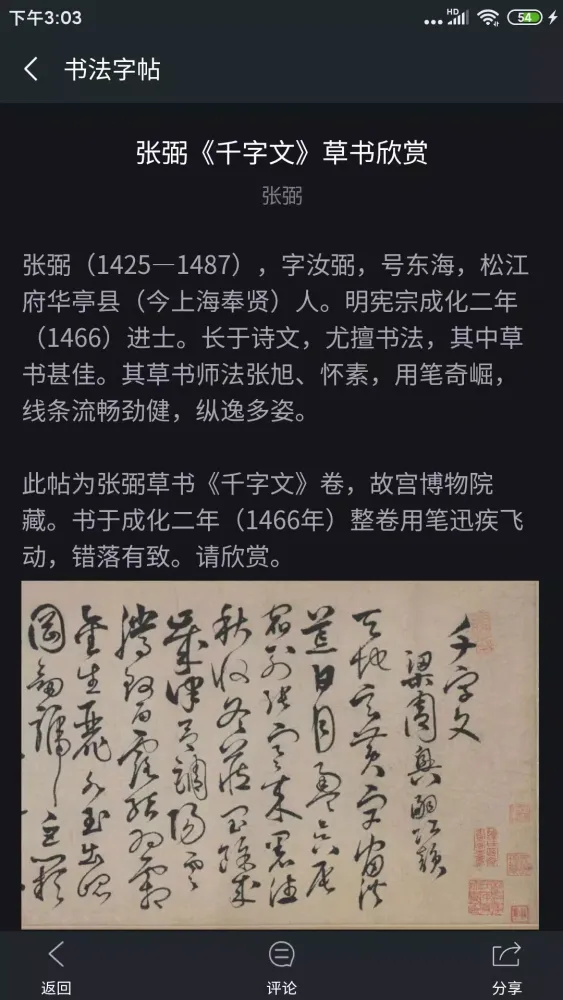 下午3:03
HD
54
书法字帖
张弼《千字文》草书欣赏
张弼
张弼（1425—1487），字汝弼，号东海，松江
府华亭县（今上海奉贤）人。明宪宗成化二年
（1466）进士。长于诗文，尤擅书法，其中草
书甚佳。其草书师法张旭、怀素，用笔奇崛，
线条流畅劲健，纵逸多姿。
此帖为张弼草书《千字文》卷，故宫博物院
藏。书于成化二年（1466年）整卷用笔迅疾飞
动，错落有致。请欣赏。
千字文
梁周興嗣次韻
天地玄黄宇宙洪
荒日月盈昃辰
宿列張寒来暑往
秋收冬藏閏餘成
歲律吕調陽雲
騰致雨露結為霜
金生麗水玉出崑
岡劍號巨闕
返回
评论
分享